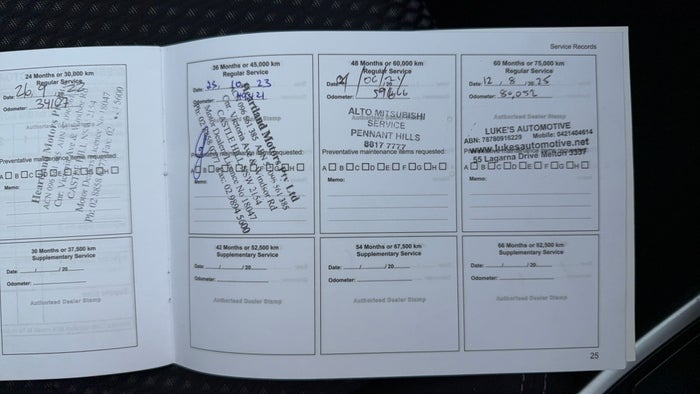 Service Records
24 Months or 30,000 km
Regular Service
Date: 26 9 22
Odometer:
Preventative maintenance items requested:
Memo:
30 Months or 37,500 km
Supplementary Service
Date: / /20
Odometer:
Authorised Dealer Stamp
36 Months or 45,000 km
Regular Service
Date: 25 10 23
Odometer:
Heartland Motors Pty Ltd
CASTLE HILL NSW 2154
Preventative maintenance items requested:
Memo:
42 Months or 52,500 km
Supplementary Service
Date: / /20
Odometer:
Authorised Dealer Stamp
48 Months or 60,000 km
Regular Service
Date:
Odometer:
ALTO MITSUBISHI
SERVICE
PENNANT HILLS
8817 7777
Preventative maintenance items requested:
A B C D E F G H
Memo:
54 Months or 67,500 km
Supplementary Service
Date: / /20
Odometer:
Authorised Dealer Stamp
60 Months or 75,000 km
Regular Service
Date: 12 8 2025
Odometer: 80,052
Authorised Dealer Stamp
LUKE'S AUTOMOTIVE
ABN: 78780916229 Mobile: 0421404614
www.lukesautomotive.net
55 Lagarna Drive Melton 3337
A B C D E F G H
Memo:
66 Months or 82,500 km
Supplementary Service
Date: / /20
Odometer:
Authorised Dealer Stamp
25